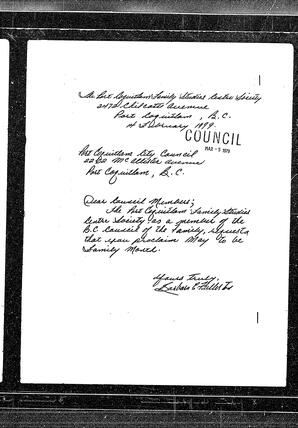 The Port Coquitlam Family Studies Centre Society
Chilcotin Avenue
Port Coquitlam, B.C.
4 February 1979.
COUNCIL
MAR - 5 1979
Port Coquitlam City Council
McAllister Avenue
Port Coquitlam, B.C.
Dear Council Members;
The Port Coquitlam Family Studies
Centre Society as a member of the
B.C. Council of the Family, requests
that you proclaim May to be
Family Month.
Yours truly,
Barbara